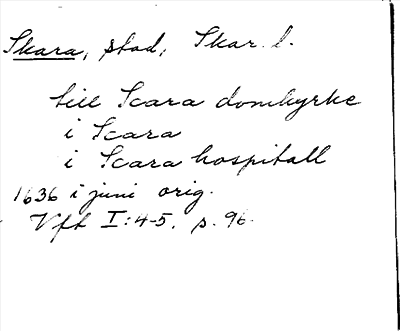 Skara, stad, Skar. l.
till Scara domkyrke
i Scara
i Scara hospitall
1636 i juni orig.
Vft I:4-5. s. 96.